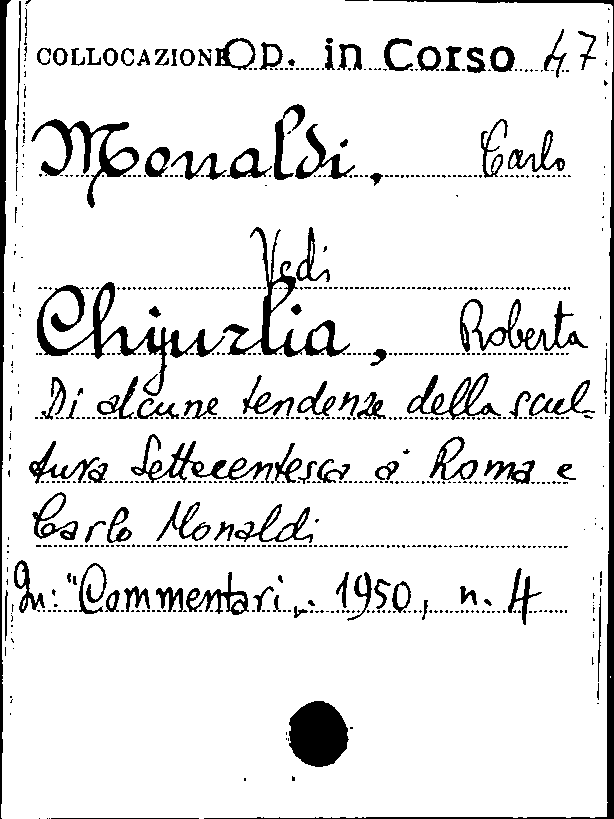 COLLOCAZIONE Op. in Corso 47
Monaldi, Carlo
Vedi
Chyurlia, Roberta
Di alcune tendenze della scul=
tura Settecentesca a Roma e
Carlo Monaldi
In: "Commentari„. 1950, n. 4